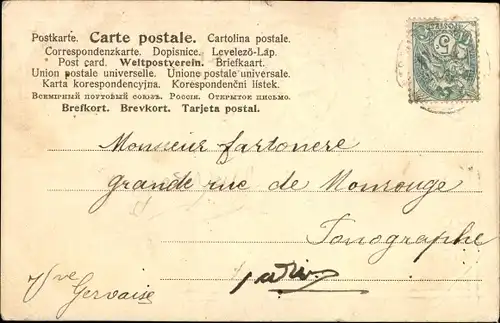 Postkarte. Carte postale. Cartolina postale.
Correspondenzkarte. Dopisnice. Levelező-Láp.
Post card. Weltpostverein. Briefkaart.
Union postale universelle. Unione postale universale.
Karta korespondencyjna. Korespondenční lístek.
Всемірный почтовый союзъ. Россія. Открытое письмо.
Brefkort. Brevkort. Tarjeta postal.
5
Monsieur fartonere
grande rue de Monrouge
Fonographe
Paris
Vve
Gervaise